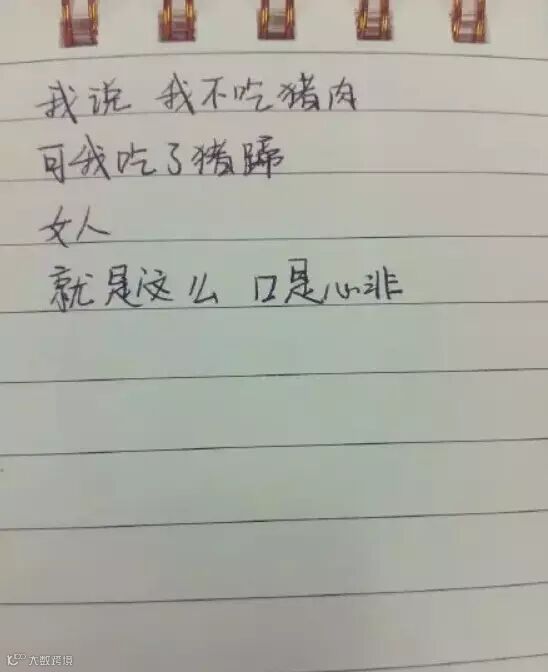 我说 我不吃猪肉
可我吃了猪蹄
女人
就是这么 口是心非
大数跨境